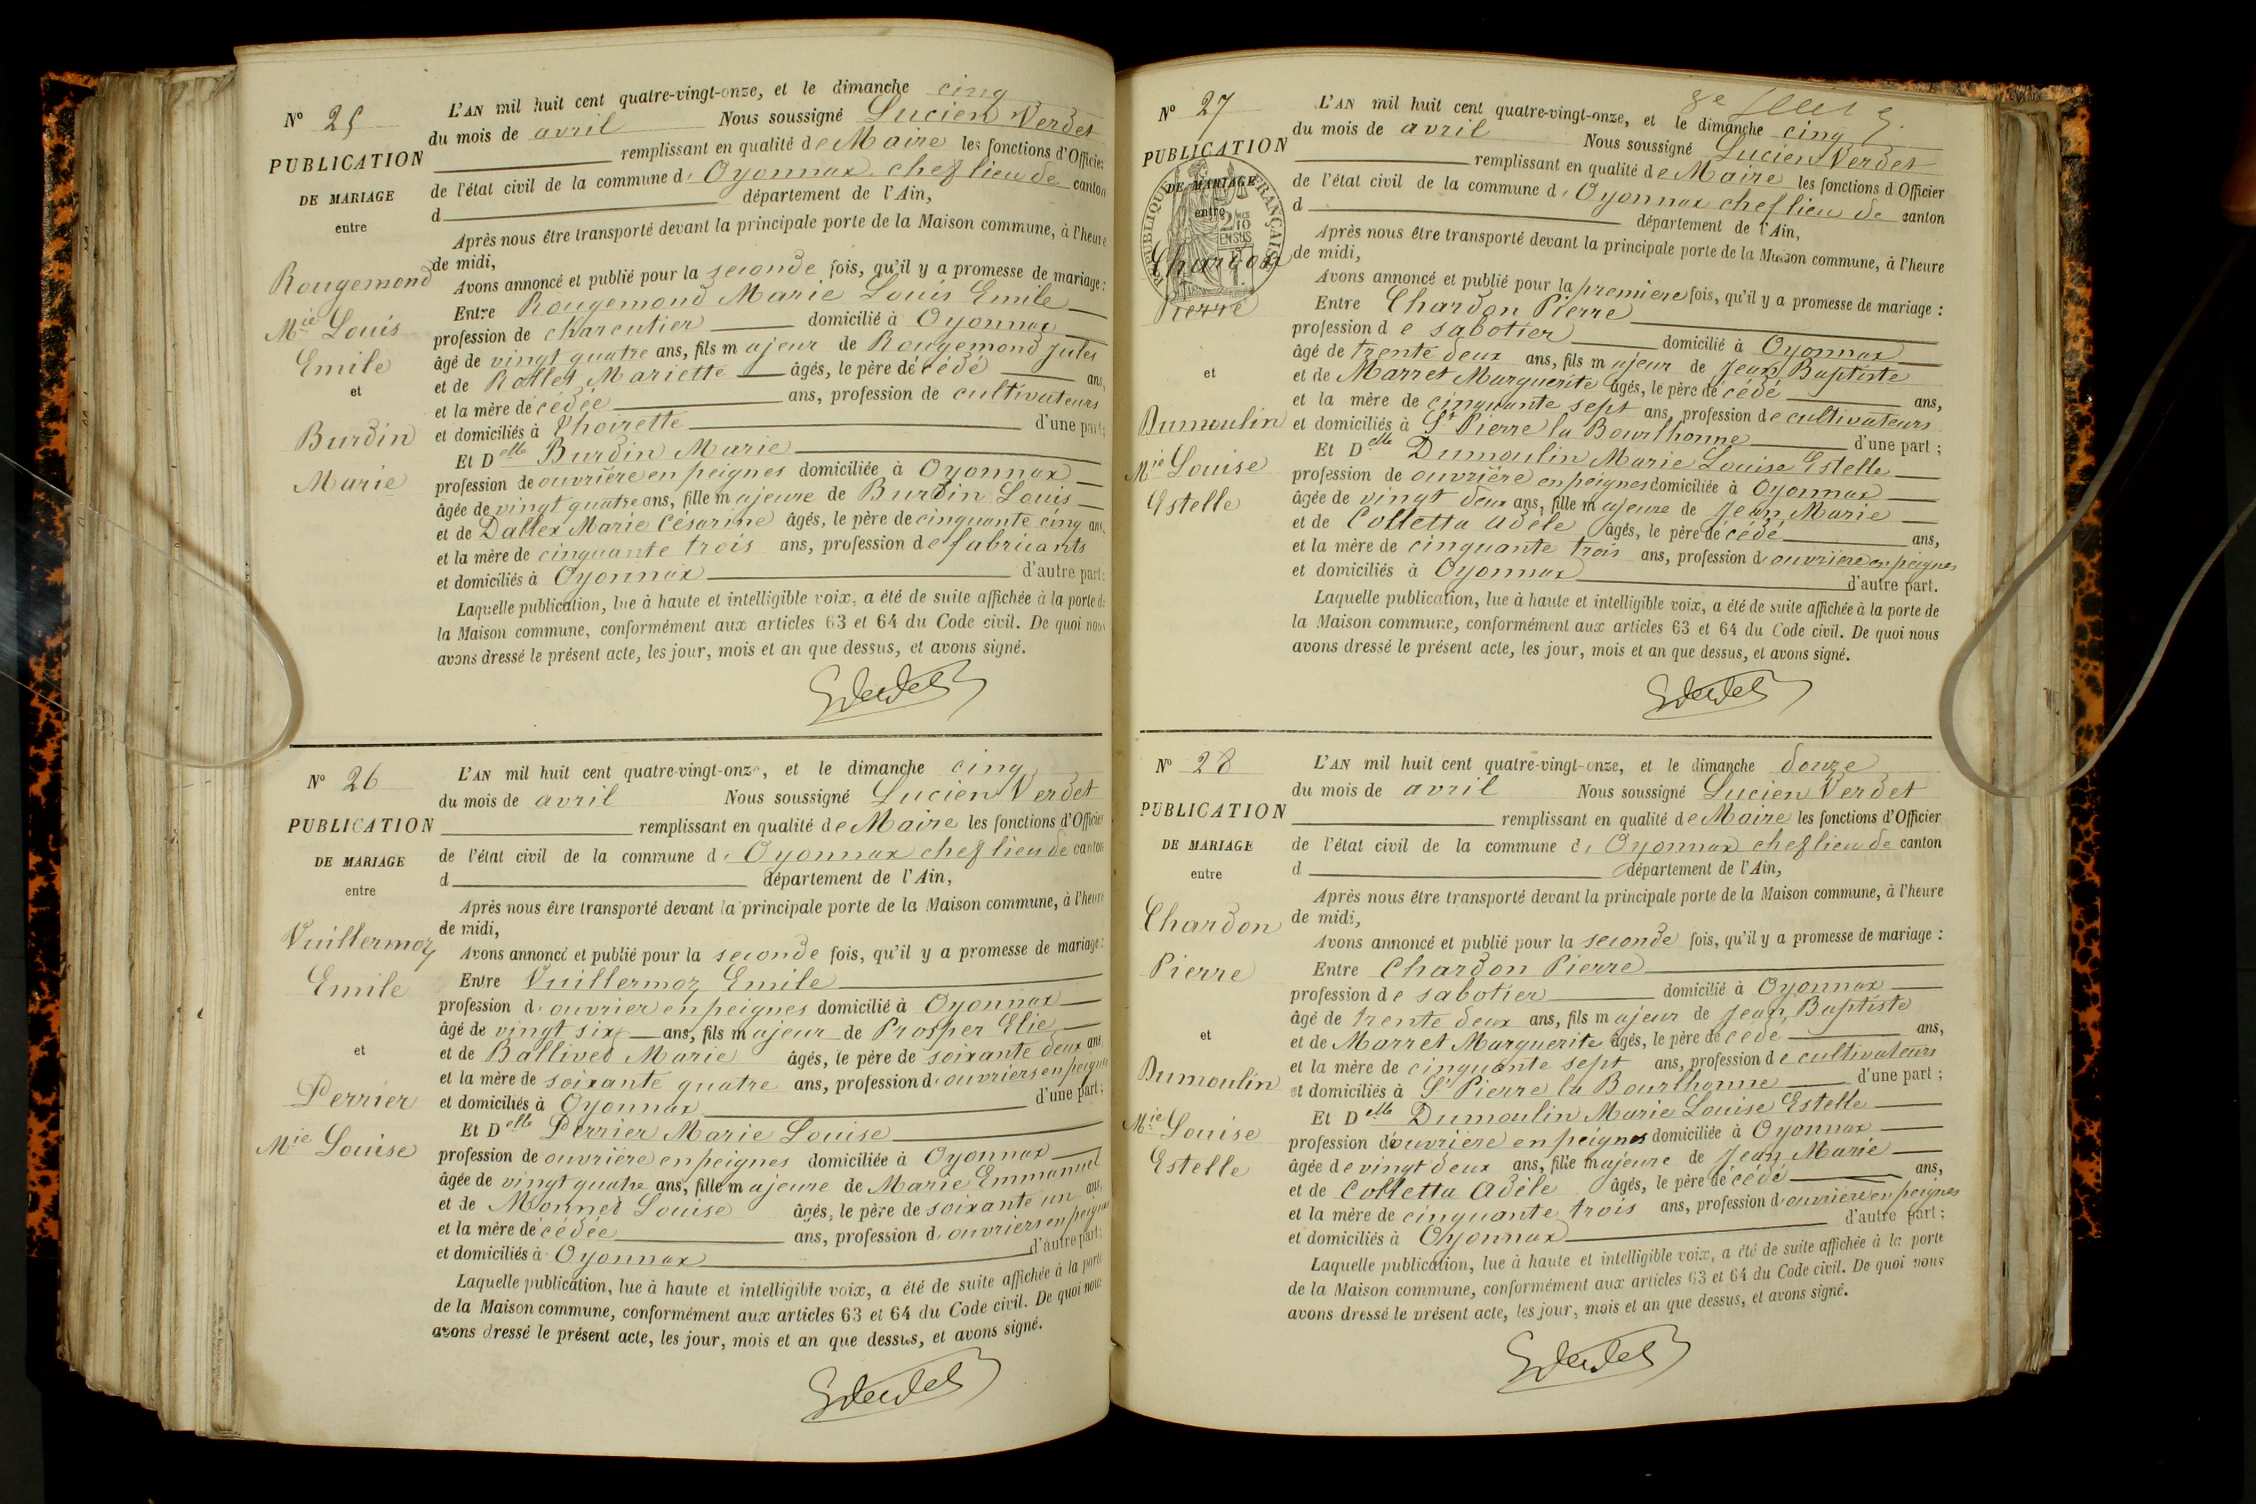 N° 25
PUBLICATION
DE MARIAGE
entre
Rougemond
Mie Louis
Emile
et
Burdin
Marie
L'AN mil huit cent quatre-vingt-onze, et le dimanche cinq
du mois de avril Nous soussigné Lucien Verdet
remplissant en qualité de Maire les fonctions d'Officier
de l'état civil de la commune d' Oyonnax chef lieu de canton
d département de l'Ain,
Après nous être transporté devant la principale porte de la Maison commune, à l'heure
de midi,
Avons annoncé et publié pour la seconde fois, qu'il y a promesse de mariage :
Entre Rougemond Marie Louis Emile
profession de charcutier domicilié à Oyonnax
âgé de vingt quatre ans, fils majeur de Rougemond Jules
et de Rollet Mariette âgés, le père décédé ans,
et la mère décédée ans, profession de cultivateurs
et domiciliés à Thoirette d'une part;
Et Delle Burdin Marie
profession de ouvrière en peignes domiciliée à Oyonnax
âgée de vingt quatre ans, fille majeure de Burdin Louis
et de Dallex Marie Césarine âgés, le père de cinquante cinq ans,
et la mère de cinquante trois ans, profession de fabricants
et domiciliés à Oyonnax d'autre part:
Laquelle publication, lue à haute et intelligible voix, a été de suite affichée à la porte de
la Maison commune, conformément aux articles 63 et 64 du Code civil. De quoi nous
avons dressé le présent acte, les jour, mois et an que dessus, et avons signé.
N° 26
PUBLICATION
DE MARIAGE
entre
Vuillermoz
Emile
et
Perrier
Mie Louise
L'AN mil huit cent quatre-vingt-onze, et le dimanche cinq
du mois de avril Nous soussigné Lucien Verdet
remplissant en qualité de Maire les fonctions d'Officier
de l'état civil de la commune d' Oyonnax chef lieu de canton
d département de l'Ain,
Après nous être transporté devant la principale porte de la Maison commune, à l'heure
de midi,
Avons annoncé et publié pour la seconde fois, qu'il y a promesse de mariage :
Entre Vuillermoz Emile
profession d' ouvrier en peignes domicilié à Oyonnax
âgé de vingt six ans, fils majeur de Prosper Elie
et de Ballived Marie âgés, le père de soixante deux ans
et la mère de soixante quatre ans, profession d' ouvriers en peignes
et domiciliés à Oyonnax d'une part;
Et Delle Perrier Marie Louise
profession de ouvrière en peignes domiciliée à Oyonnax
âgée de vingt quatre ans, fille majeure de Marie Emmanuel
et de Monned Louise âgés, le père de soixante un ans,
et la mère décédée ans, profession d' ouvriers en peignes
et domiciliés à Oyonnax d'autre part:
Laquelle publication, lue à haute et intelligible voix, a été de suite affichée à la porte
de la Maison commune, conformément aux articles 63 et 64 du Code civil. De quoi nous
avons dressé le présent acte, les jour, mois et an que dessus, et avons signé.
N° 27
PUBLICATION
DE MARIAGE
entre
RÉPUBLIQUE FRANÇAISE
Chardon
Pierre
et
Dumoulin
Mie Louise
Estelle
L'AN mil huit cent quatre-vingt-onze, et le dimanche cinq
du mois de avril Nous soussigné Lucien Verdet
remplissant en qualité de Maire les fonctions d'Officier
de l'état civil de la commune d' Oyonnax chef lieu de canton
d département de l'Ain,
Après nous être transporté devant la principale porte de la Maison commune, à l'heure
de midi,
Avons annoncé et publié pour la première fois, qu'il y a promesse de mariage :
Entre Chardon Pierre
profession de sabotier domicilié à Oyonnax
âgé de trente deux ans, fils majeur de Jean Baptiste
et de Marret Marguerite âgés, le père décédé ans,
et la mère de cinquante sept ans, profession de cultivateurs
et domiciliés à St Pierre la Bourlhonne d'une part ;
Et Delle Dumoulin Marie Louise Estelle
profession de ouvrière en peignes domiciliée à Oyonnax
âgée de vingt deux ans, fille majeure de Jean Marie
et de Colletta Adèle âgés, le père décédé ans,
et la mère de cinquante trois ans, profession d' ouvrière en peignes
et domiciliés à Oyonnax d'autre part.
Laquelle publication, lue à haute et intelligible voix, a été de suite affichée à la porte de
la Maison commune, conformément aux articles 63 et 64 du Code civil. De quoi nous
avons dressé le présent acte, les jour, mois et an que dessus, et avons signé.
N° 28
PUBLICATION
DE MARIAGE
entre
Chardon
Pierre
et
Dumoulin
Mie Louise
Estelle
L'AN mil huit cent quatre-vingt-onze, et le dimanche douze
du mois de avril Nous soussigné Lucien Verdet
remplissant en qualité de Maire les fonctions d'Officier
de l'état civil de la commune d' Oyonnax chef lieu de canton
d département de l'Ain,
Après nous être transporté devant la principale porte de la Maison commune, à l'heure
de midi,
Avons annoncé et publié pour la seconde fois, qu'il y a promesse de mariage :
Entre Chardon Pierre
profession de sabotier domicilié à Oyonnax
âgé de trente deux ans, fils majeur de Jean Baptiste
et de Marret Marguerite âgés, le père de cédé ans,
et la mère de cinquante sept ans, profession de cultivateurs
et domiciliés à St Pierre la Bourlhonne d'une part ;
Et Delle Dumoulin Marie Louise Estelle
profession d'ouvrière en peignes domiciliée à Oyonnax
âgée de vingt deux ans, fille majeure de Jean Marie
et de Colletta Adèle âgés, le père décédé ans,
et la mère de cinquante trois ans, profession d' ouvrière en peignes
et domiciliés à Oyonnax d'autre part ;
Laquelle publication, lue à haute et intelligible voix, a été de suite affichée à la porte
de la Maison commune, conformément aux articles 63 et 64 du Code civil. De quoi nous
avons dressé le présent acte, les jour, mois et an que dessus, et avons signé.